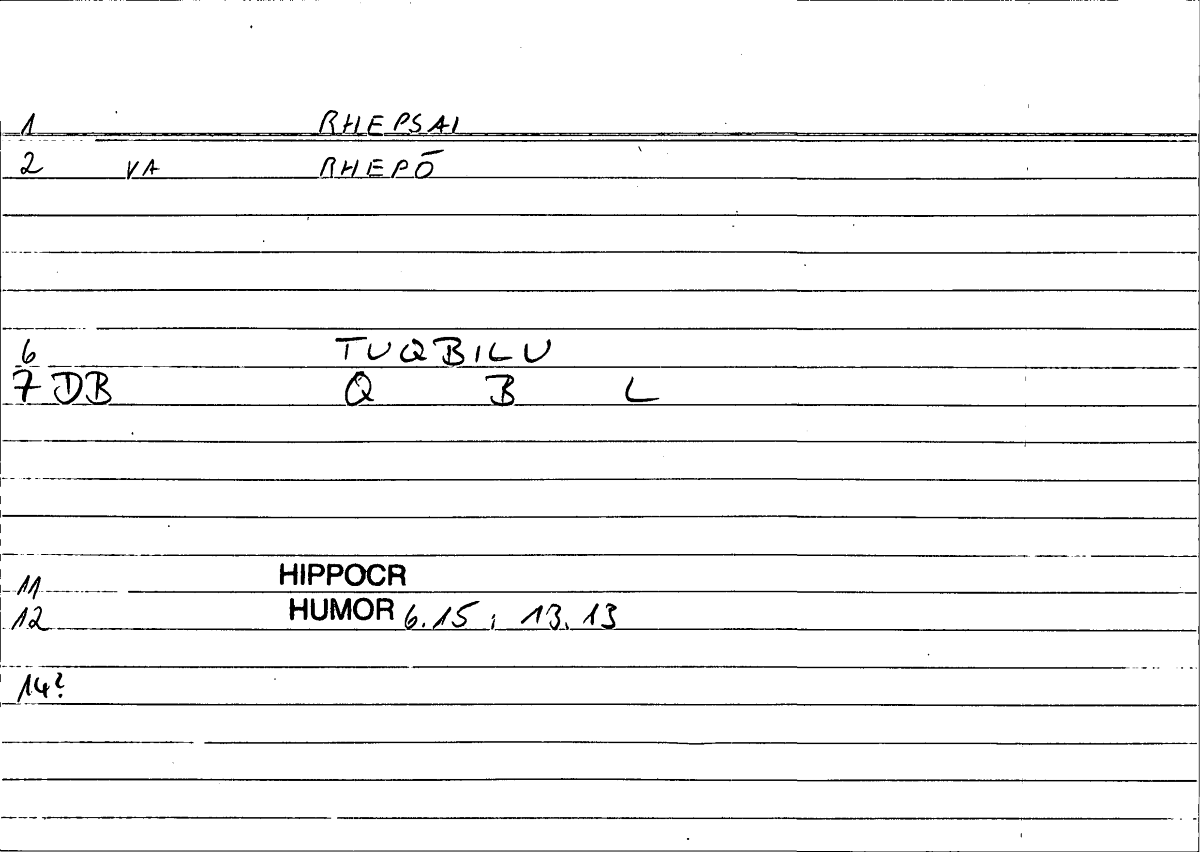 1 RHEPSAI
2 VA RHEPŌ
6 TUQBILU
7 DB Q B L
11 HIPPOCR
12 HUMOR 6.15 ; 13.13
14?